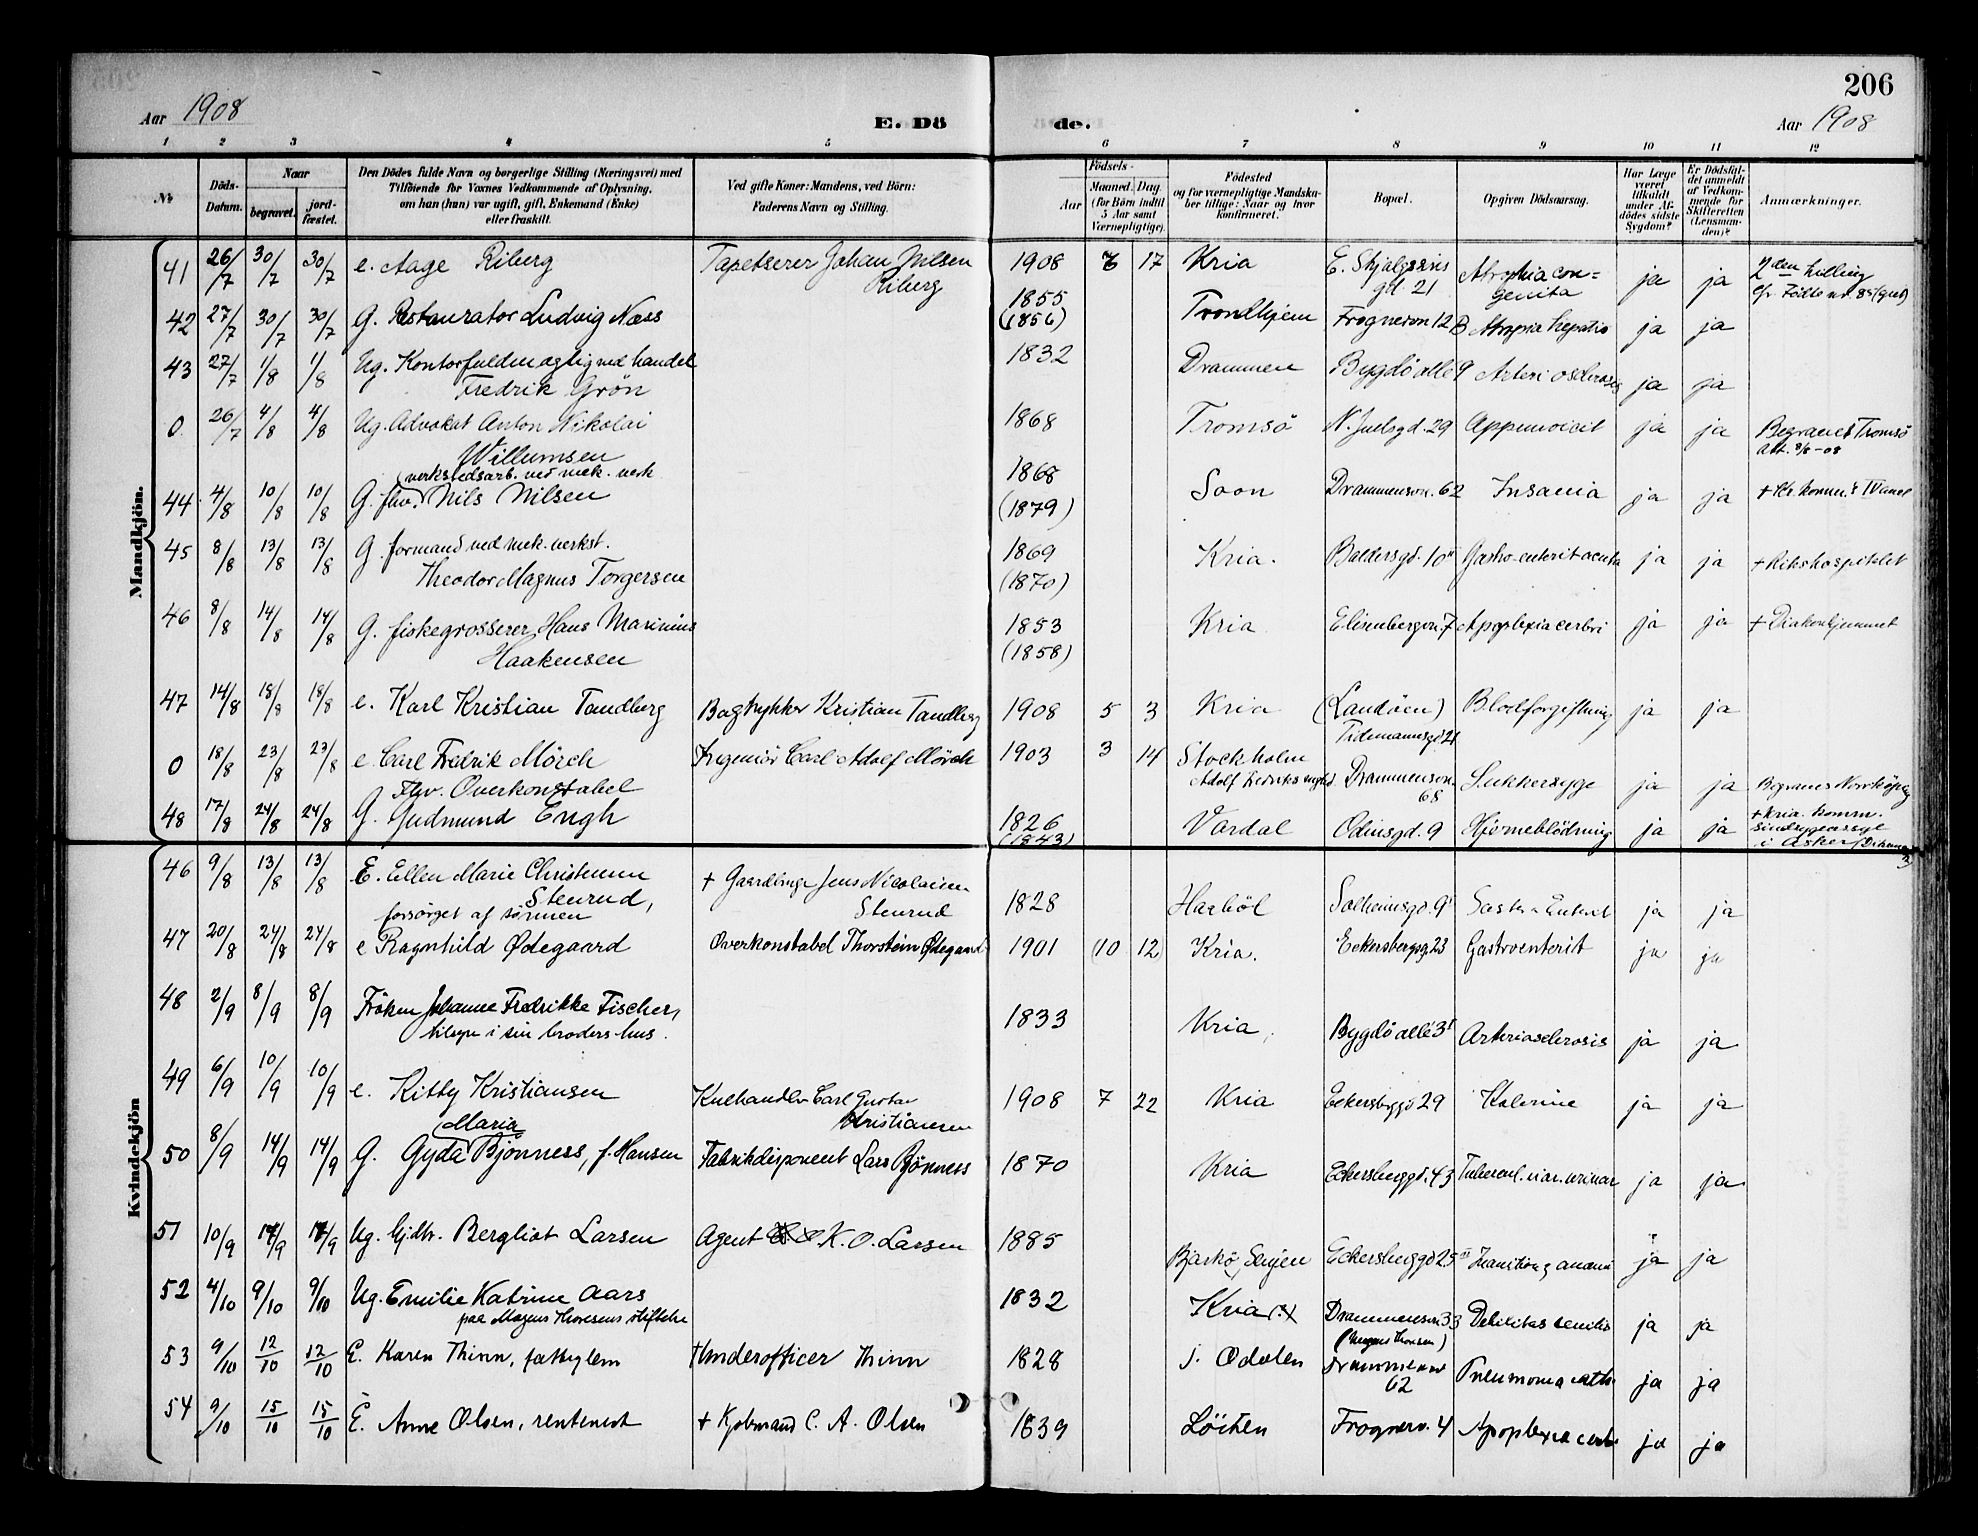 206
Aar 1908
E. Dö
de.
Aar 1908
1 2 3 4 5 6 7 8 9 10 11 12
No
Döds-Datum.
Naar
begravet.
jord-fæstet.
Den Dödes fulde Navn og borgerlige Stilling (Næringsvei) med
Tilföiende for Voxnes Vedkommende af Oplysning,
om han (hun) var ugift, gift, Enkemand (Enke)
eller fraskilt.
Ved gifte Koner: Mandens, ved Börn:
Faderens Navn og Stilling.
Födsels-
Aar
Maaned. Dag
(for Börn indtil
5 Aar samt
Værnepligtige).
Födested
og for værnepligtige Mandska-
ber tillige: Naar og hvor
konfirmeret.
Bopæl.
Opgiven Dödsaarsag.
Har Læge
været
tilkaldt
under Af-
dödes sidste
Sygdom?
Er Dödsfal-
det anmeldt
af Vedkom-
mende for
Skifteretten
(Lensman-
den)?
Anmærkninger.
Mandkjön.
41 26/7 30/7 30/7 e. Aage Riberg Tapetserer Johan Nilsen 1908 17 Kria E. Skjalgssöns Atrophia con= ja ja 2den tvilling
Riberg gd. 21 genita
42 27/7 30/7 30/7 G. Restauratør Ludvig Næss 1855 Trondhjem Frognervn 12 B Atropia hepatis ja ja
(1856)
43 27/7 1/8 1/8 Ug. Kontorfuldmægtig ved handel 1832 Drammen Bygdö allé 9 Arteriosclerosis ja ja
Fredrik Grön
0 26/7 4/8 4/8 Ug. Advokat Anton Nikolai 1868 Tromsö N. Juelsgd. 29 Appendicit ja ja Begraves Tromsö
Willumsen
verkstedsarb. ved mek. verk.
44 4/8 10/8 10/8 G. fhv. Nils Nilsen 1868 Soon Drammensvn. 62 Insania ja ja
(1879)
45 8/8 13/8 13/8 G. formand ved mek. verkst. 1869 Kria. Baldersgd. 10 Gastro-enterit acuta ja ja + Rikshospitalet
Theodor Magnus Torgersen (1870)
46 8/8 14/8 14/8 G. fiskegrosserer Hans Marinius 1853 Kria Elisenbergvn. 7 Apoplexia cerbri ja ja + Diakonhjemmet
Haakensen (1858)
47 14/8 18/8 18/8 e. Karl Kristian Tandberg Bogtrykker Kristian Tandberg 1908 5 3 Kria (Landöen) Blodforgiftning ja ja
Tidemannsgd 21
0 18/8 23/8 23/8 e. Carl Fredrik Mörch Ingeniör Carl Adolf Mörch 1903 3 14 Stockholm Drammensvn. Sukkersyge ja ja Begraves Norrköping
68
Fhv. Overkonstabel
48 17/8 24/8 24/8 G. Gudmund Engh 1826 Vardal Odinsgd. 9 Hjerneblödning ja ja + Kria. komm.
(1843) sindsygeasyl
i Asker
Kvindekjön
46 9/8 13/8 13/8 E. Ellen Marie Christenson + Gaardbruger Jens Nicolaisen 1828 Solheimsgd. 9 Gastro-Enterit ja ja
Stenrud, Stenrud
forsørget af sønnen
47 20/8 24/8 24/8 e Ragnhild Ødegaard Overkonstabel Thorstein Ødegaard 1901 (10 12) Kria. Eckersbergsg. 23 Gastroenterit ja ja
48 2/9 8/9 8/9 Fröken Johanne Fredrikke Fischer, 1833 Kria. Bygdö allé 3 Arteriosclerosis ja ja
i sin broders hus.
49 6/9 10/9 10/9 e. Kitty Kristiansen Kulhandler Carl Gustav 1908 7 22 Kria Eckersbggd 29 Kolerine ja ja
Kristiansen
Maria
50 8/9 14/9 14/9 G. Gyda Bjönness, f. Hansen Fabrikdisponent Lars Bjönness 1870 Kria Eckersberggd. 43 Tubercul. viar. urinar ja ja
51 10/9 17/9 17/9 Ug. Gjdtr. Bergliot Larsen Agent K. O. Larsen 1885 Bjarkö, Senjen Eckersberggd 25 ja ja
52 4/10 9/10 9/10 Ug. Emilie Katrine Aars 1832 Kria Drammensvn 33 Debilitas senilis ja ja
paa Mogens Thoresens stiftelse (Mogens Thoresen)
53 9/10 12/10 12/10 E. Karen Thinn, fattiglem + Underofficer Thinn 1828 S. Odalen Drammensvn 62 Pneumonia cath. ja ja
54 9/10 15/10 15/10 E. Anne Olsen, rentenist + Kjøbmand C. A. Olsen 1839 Löiten Frognerv. 4 Apoplexia cerebr. ja ja